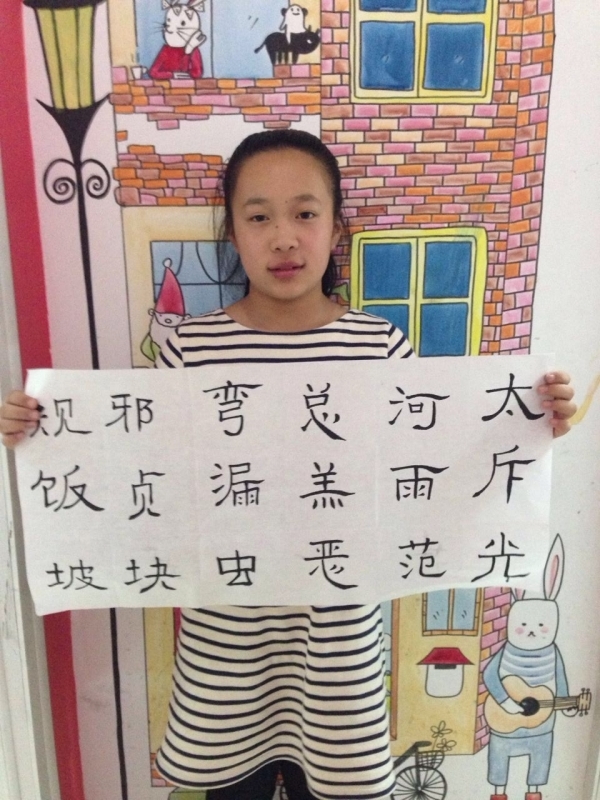 太斥光
河雨范
总羔恶
弯漏虫
邪贞块
规饭坡